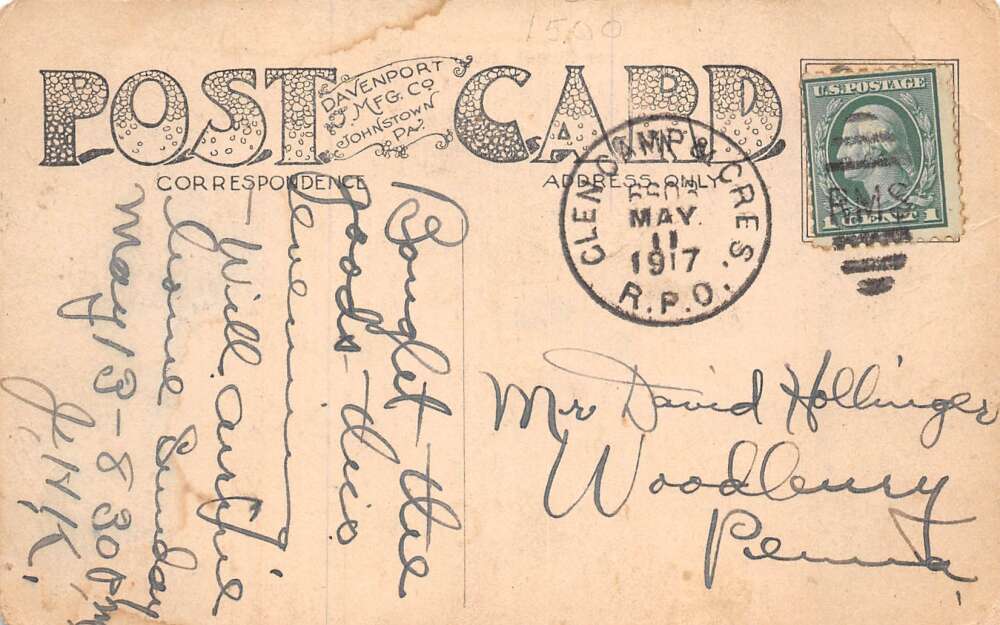 1500
POST CARD
DAVENPORT
MFG. CO
JOHNSTOWN
PA.
U.S. POSTAGE
1 1
RMS
CORRESPONDENCE
ADDRESS ONLY
GLEN CAMP & CRES.
MAY
11
1917
R.P.O.
Bought the
goods - this
evening
- Will arrive
home Sunday
May 13 - 8 30 PM
J.H.K.
Mr David Hollinger
Woodbury
Penna.